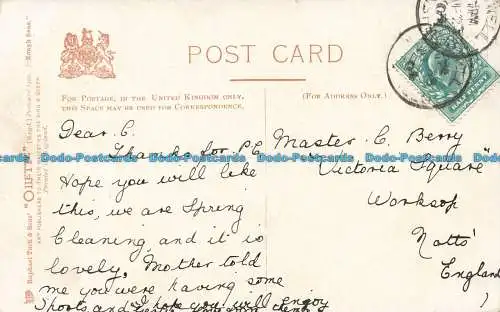 POST CARD
FOR POSTAGE, IN THE UNITED KINGDOM ONLY,
THIS SPACE MAY BE USED FOR CORRESPONDENCE.
(FOR ADDRESS ONLY.)
HALFPENNY
Raphael Tuck & Sons' "OILETTE" [Regd.] Postcard
"Rough Seas."
ART PUBLISHERS TO THEIR MAJESTIES THE KING & QUEEN
Dear C.
Thanks for P.C
Hope you will like
this, we are Spring
Cleaning and it is
lovely, Mother told
me you were having some
Shoots and
I hope you will enjoy
Master C Berry
"Victoria Square"
Worksop
Notts'
England
Dodo-Postcards Dodo-Postcards Dodo-Postcards Dodo-Postcards Dodo-Postcards Dodo-Postcards